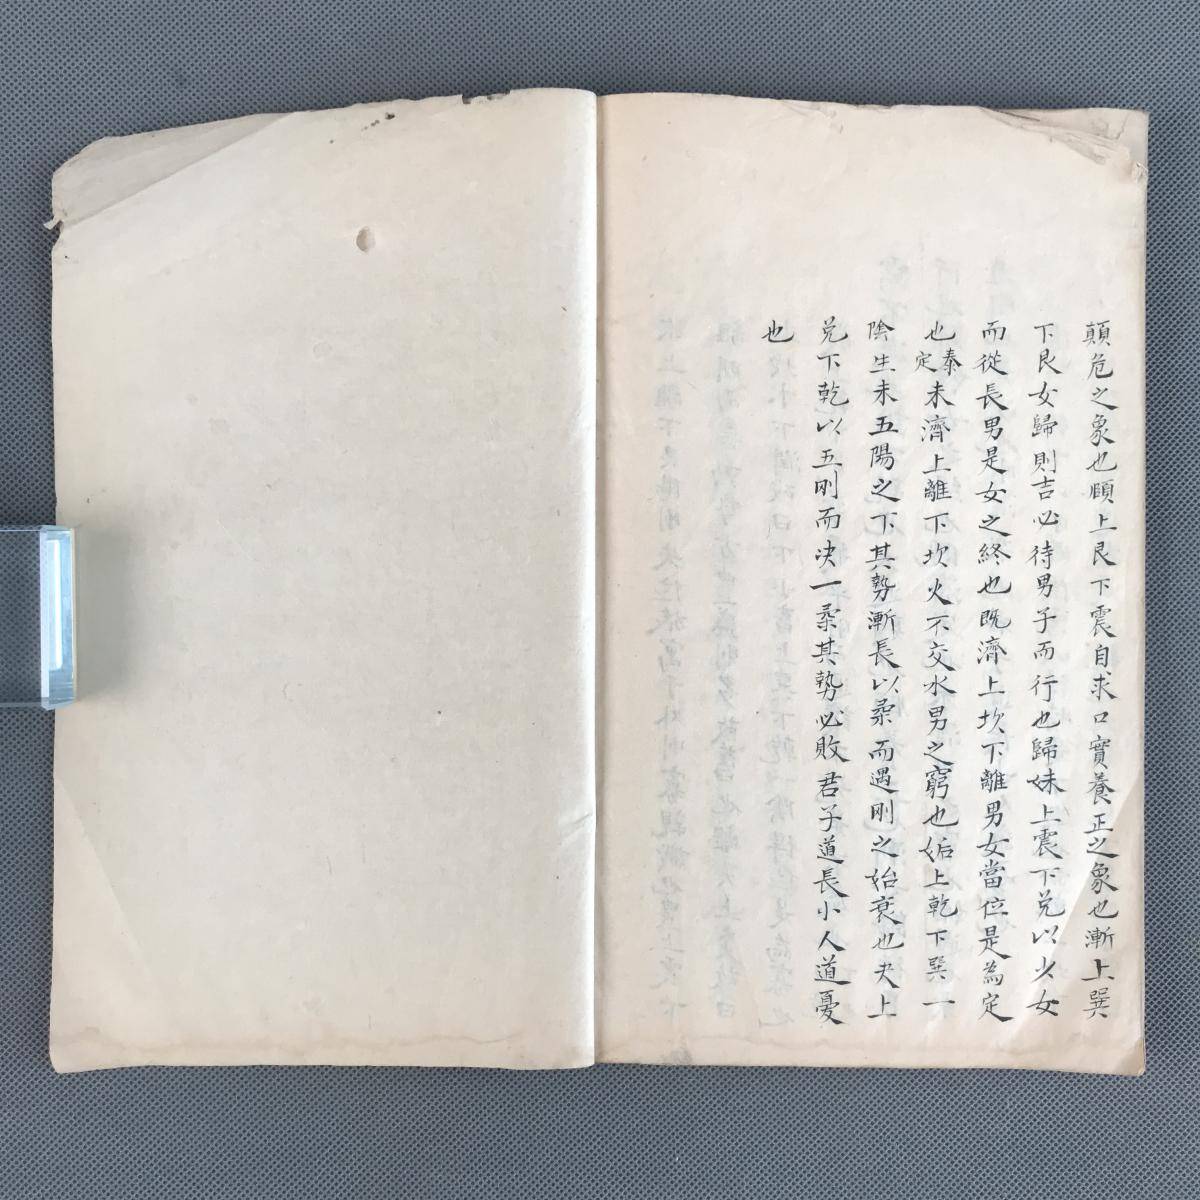 顛危之象也頤上艮下震自求口實養正之象也漸上巽
下艮女歸則吉必待男子而行也歸妹上震下兑以少女
而從長男是女之終也既濟上坎下離男女當位是為定
也泰定未濟上離下坎火不交水男之窮也姤上乾下巽一
陰生未五陽之下其勢漸長以柔而遇刚之始衰也夬上
兑下乾以五刚而决一柔其勢必敗君子道長小人道憂
也